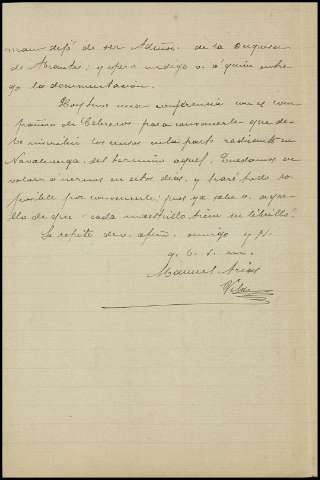 man dejó de ser Admor. de la Duquesa
de Abrantes; y espero me diga V. a quien entre-
go la documentación.
Hoy tuve una conferencia con el com-
pañero de Cebreros para convencerle que de-
be inscribir los censos en la parte radicante en
Navaluenga, del termino aquel. Quedamos en
volver a vernos en estos dias, y haré todo lo
posible por convencerle; pues ya sabe V. aque-
llo de que "cada maestrillo tiene su librillo".
Se repite de V. afmo. amigo y s.s.
q. b. s. m.
Manuel Arias